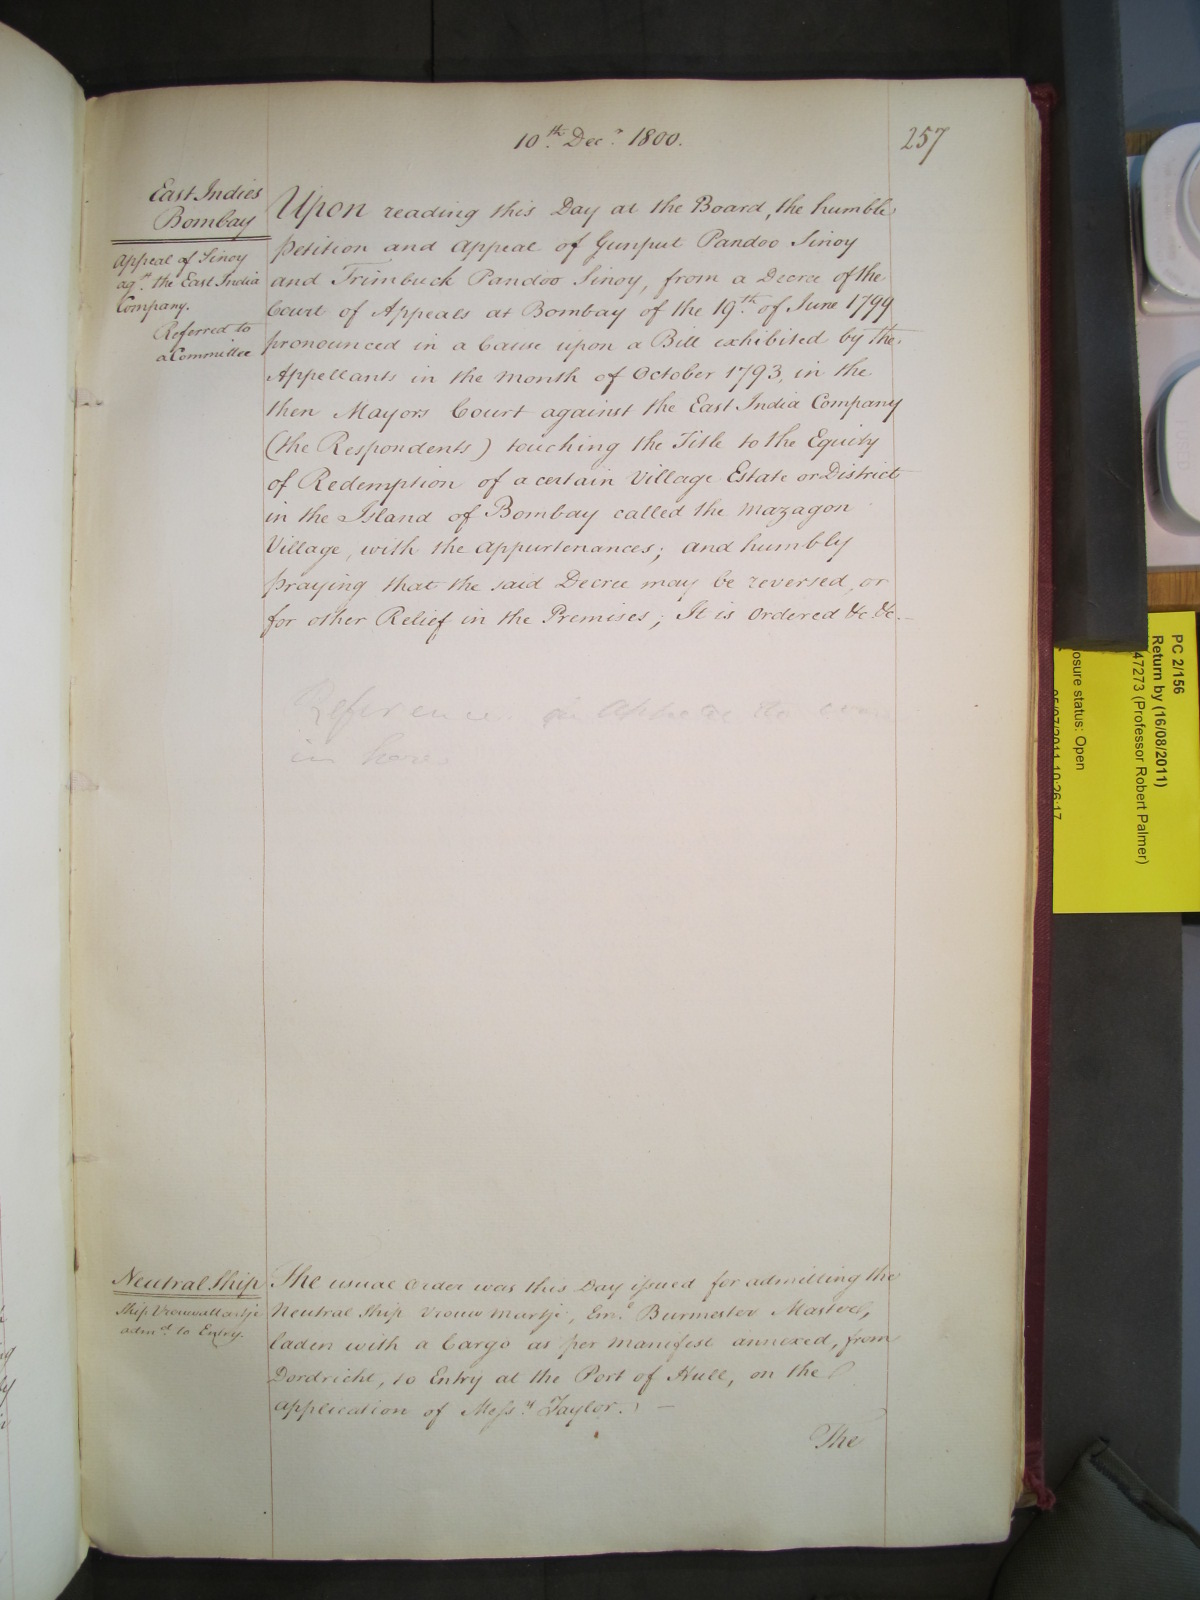 10th Decr 1800.
257
East Indies
Bombay
Appeal of Sinoy
agst the East India
Company.
Referred to
a Committee
Upon reading this Day at the Board, the humble
Petition and Appeal of Gunput Pandoo Sinoy
and Trimbuck Pandoo Sinoy, from a Decree of the
Court of Appeals at Bombay of the 19th of June 1799
pronounced in a Cause upon a Bill exhibited by the
Appellants in the Month of October 1793, in the
then Mayors Court against the East India Company
(the Respondents) touching the Title to the Equity
of Redemption of a certain Village Estate or District
in the Island of Bombay called the Mazagon
Village, with the Appurtenances; and humbly
praying that the said Decree may be reversed, or
for other Relief in the Premises; It is Ordered &c &c.
Reference
in here
Neutral Ship
Ship Vrouw Martje
admd to Entry.
The usual Order was this Day issued for admitting the
Neutral Ship Vrouw Martje, Burmester Master,
laden with a Cargo as per Manifest annexed, from
Dordricht, to Entry at the Port of Hull, on the
Application of Messrs Taylor. —
The
PC 2/156
Return by (16/08/2011)
47273 (Professor Robert Palmer)
osure status: Open
05/07/2011 10:26:17